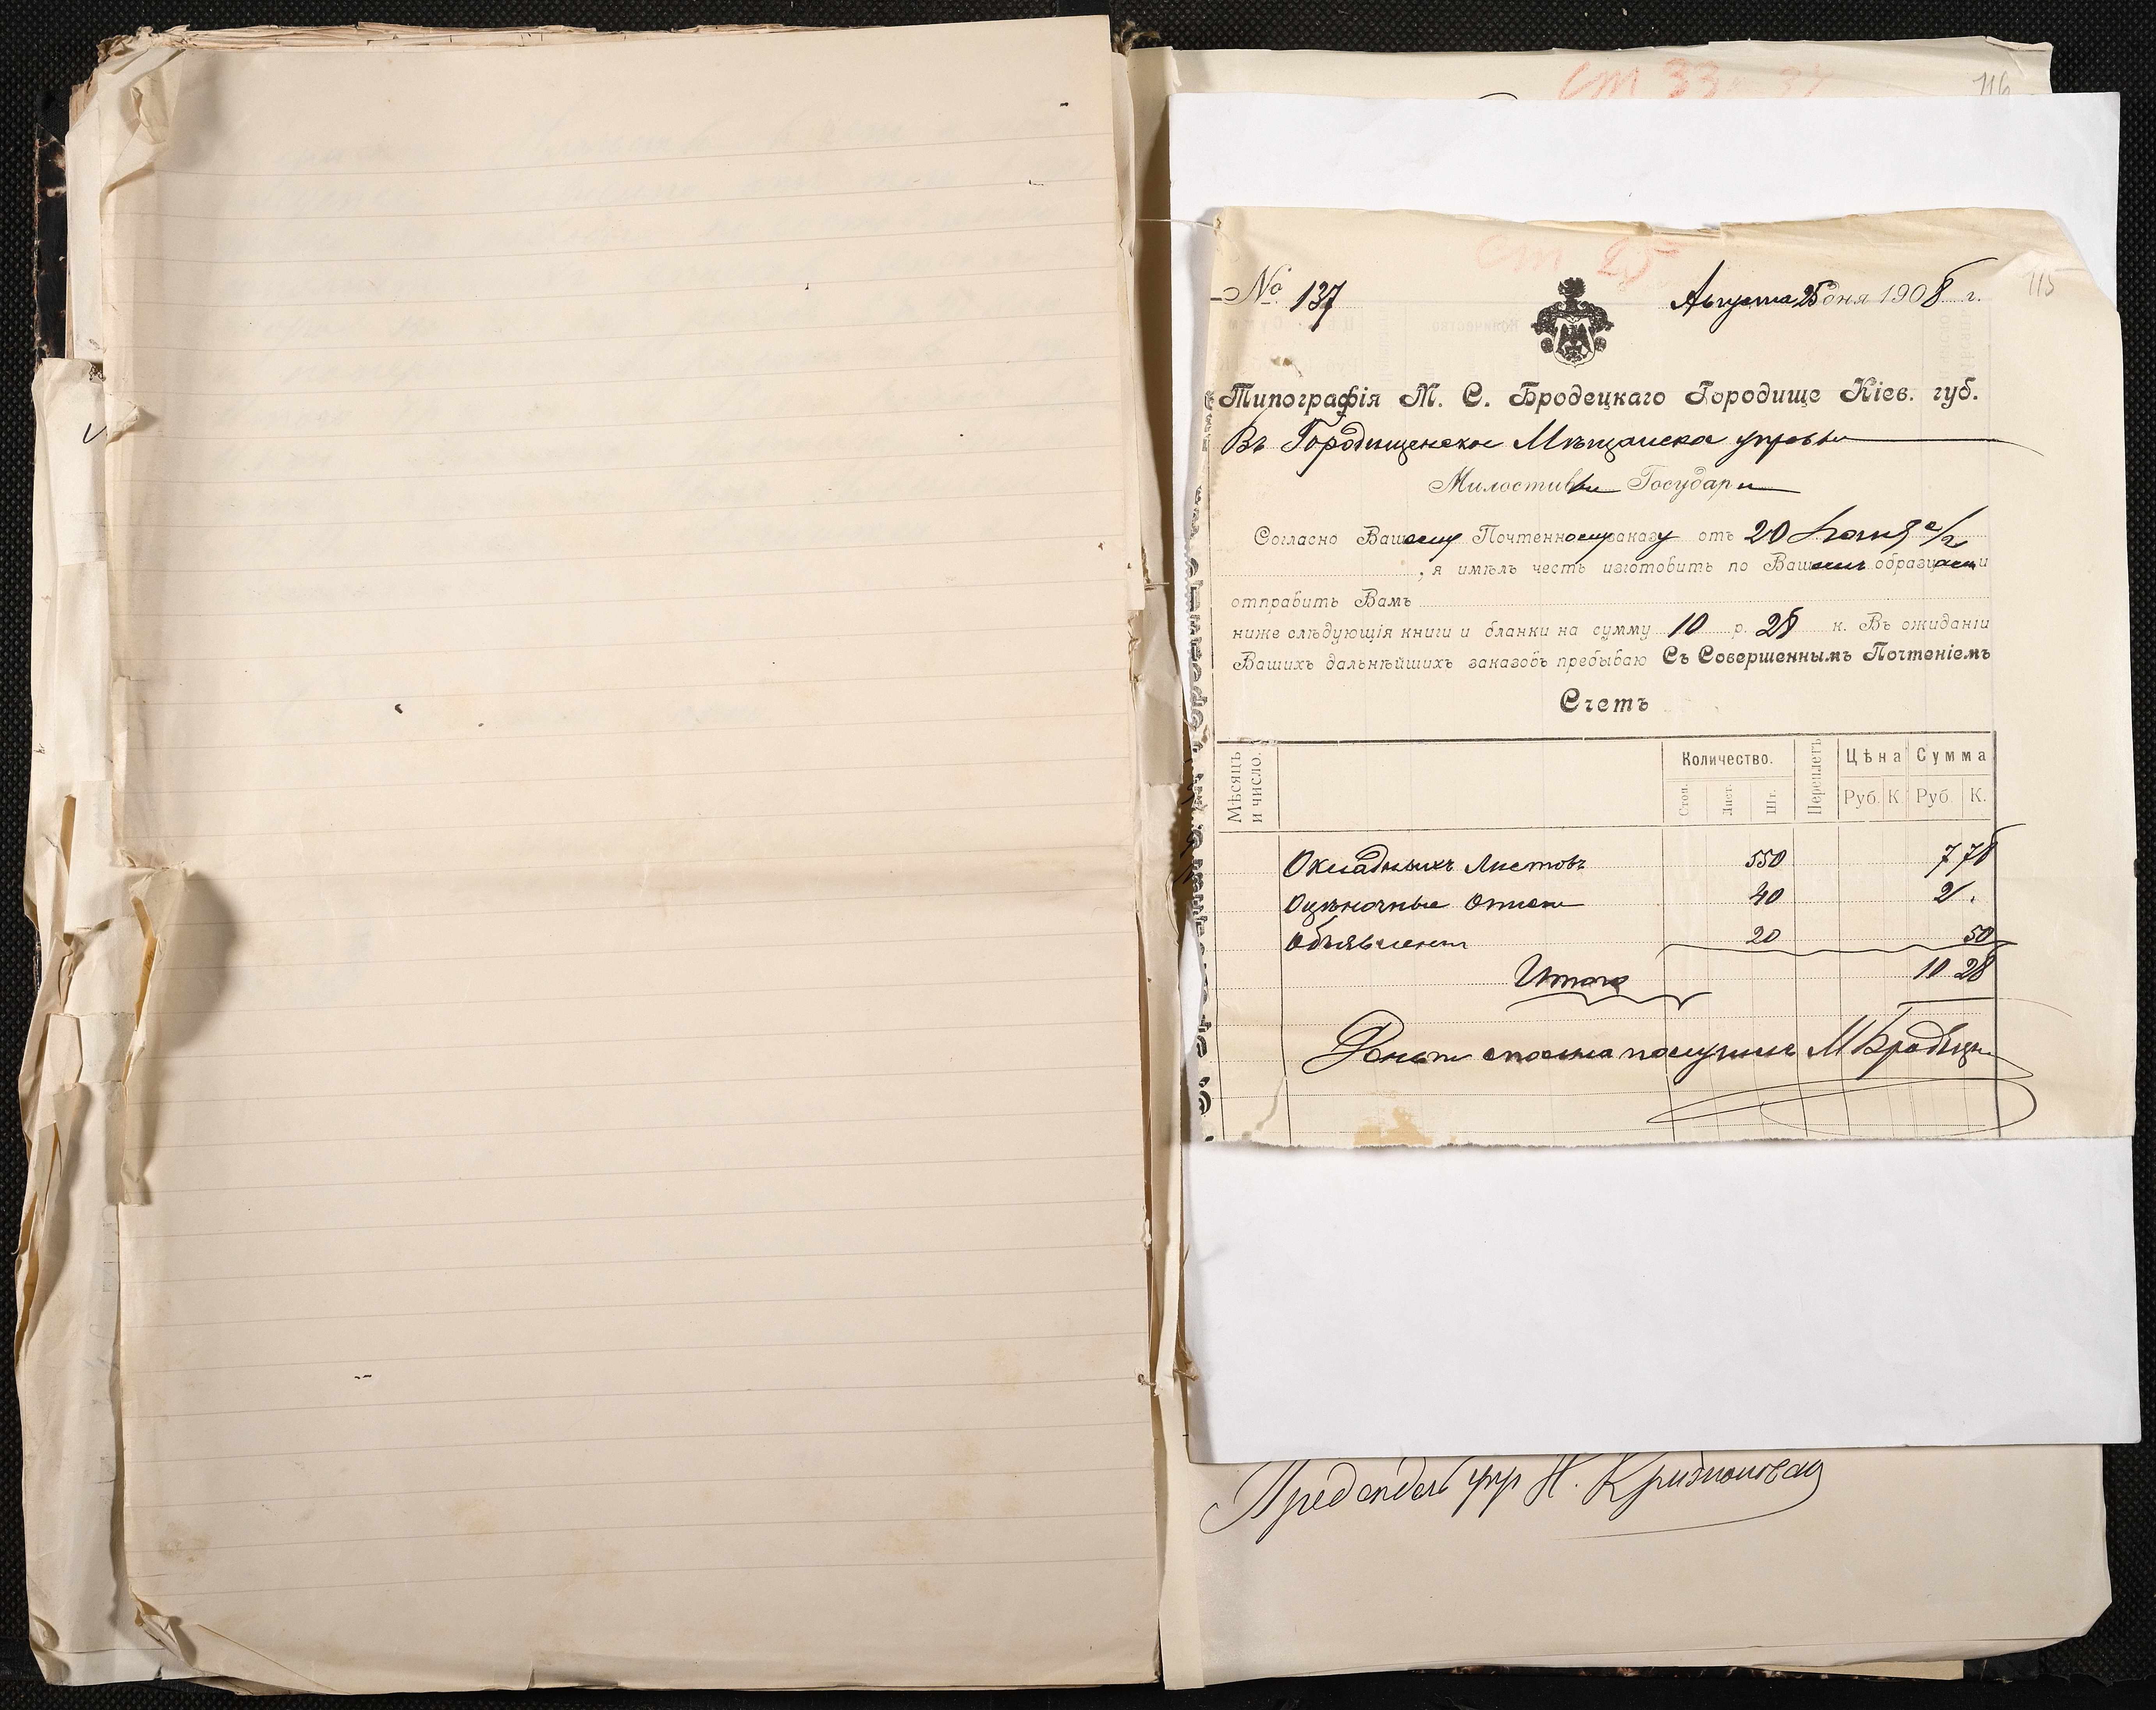 ст 33 и 34
116
ст 25
115
№ 137
Августа 25 дня 1908 г.
Типографія М. С. Бродецкаго Городище Кіев. губ.
Въ Городищенская Мѣщанская управа
Милостивые Государи
Согласно Вашему Почтенному заказу отъ 20 Іюня с/г
, я имѣлъ честь изготовить по Вашимъ образцамъ и
отправить Вамъ
ниже слѣдующія книги и бланки на сумму 10 р. 28 к. Въ ожиданіи
Вашихъ дальнѣйшихъ заказовъ пребываю Съ Совершеннымъ Почтеніемъ
Счетъ
Мѣсяцъ и число.
Количество.
Переплетъ
Цѣна
Сумма
Стоп.
Лист.
Шт.
Руб.
К.
Руб.
К.
Окладныхъ Листовъ 550 7 78
Оцѣночные описи 40 2 .
Объявленія 20 50
Итого 10 28
Деньги сполна получилъ М Бродецкій
Предсѣдатель упр Н.